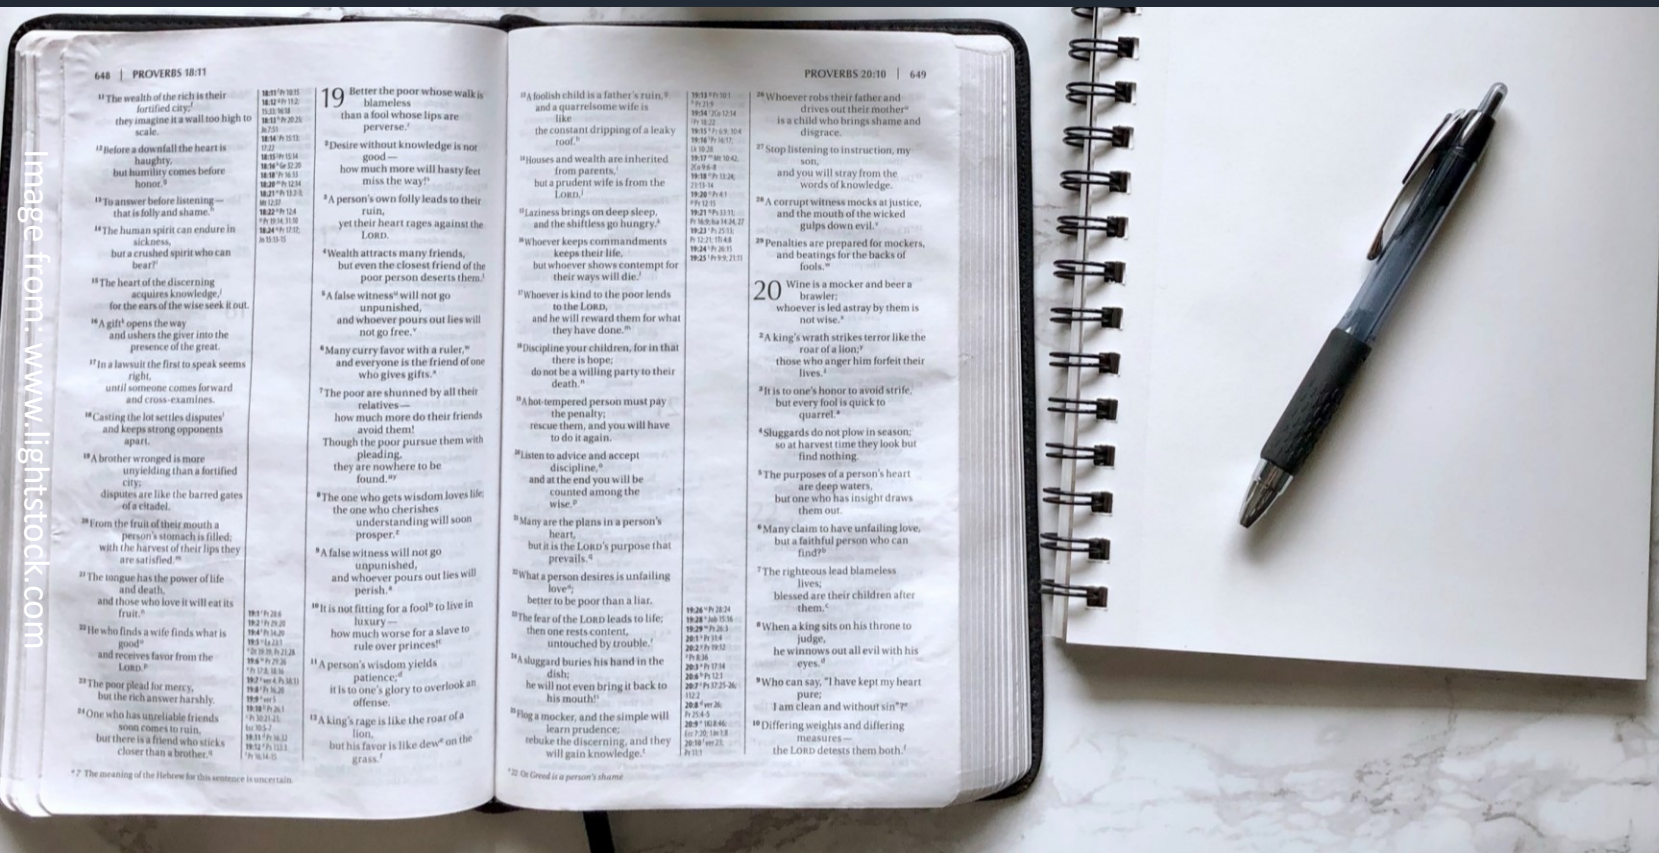 648 | PROVERBS 18:11
¹¹The wealth of the rich is their
fortified city;ᶠ
they imagine it a wall too high to
scale.
¹²Before a downfall the heart is
haughty,
but humility comes before
honor.ᵍ
¹³To answer before listening—
that is folly and shame.ʰ
¹⁴The human spirit can endure in
sickness,
but a crushed spirit who can
bear?ⁱ
¹⁵The heart of the discerning
acquires knowledge,ʲ
for the ears of the wise seek it out.
¹⁶A giftᵏ opens the way
and ushers the giver into the
presence of the great.
¹⁷In a lawsuit the first to speak seems
right,
until someone comes forward
and cross-examines.
¹⁸Casting the lot settles disputesˡ
and keeps strong opponents
apart.
¹⁹A brother wronged is more
unyielding than a fortified
city;
disputes are like the barred gates
of a citadel.
²⁰From the fruit of their mouth a
person's stomach is filled;
with the harvest of their lips they
are satisfied.ᵐ
²¹The tongue has the power of life
and death,
and those who love it will eat its
fruit.ⁿ
²²He who finds a wife finds what is
goodᵒ
and receives favor from the
LORD.ᵖ
²³The poor plead for mercy,
but the rich answer harshly.
²⁴One who has unreliable friends
soon comes to ruin,
but there is a friend who sticks
closer than a brother.q
19 Better the poor whose walk is
blameless
than a fool whose lips are
perverse.ʳ
²Desire without knowledge is not
good—
how much more will hasty feet
miss the way!ˢ
³A person's own folly leads to their
ruin,
yet their heart rages against the
LORD.
⁴Wealth attracts many friends,
but even the closest friend of the
poor person deserts them.ᵗ
⁵A false witnessᵘ will not go
unpunished,
and whoever pours out lies will
not go free.ᵛ
⁶Many curry favor with a ruler,ʷ
and everyone is the friend of one
who gives gifts.ˣ
⁷The poor are shunned by all their
relatives—
how much more do their friends
avoid them!
Though the poor pursue them with
pleading,
they are nowhere to be
found.ᵃʸ
⁸The one who gets wisdom loves life;
the one who cherishes
understanding will soon
prosper.ᶻ
⁹A false witness will not go
unpunished,
and whoever pours out lies will
perish.ᵃ
¹⁰It is not fitting for a foolᵇ to live in
luxury—
how much worse for a slave to
rule over princes!ᶜ
¹¹A person's wisdom yields
patience;ᵈ
it is to one's glory to overlook an
offense.
¹²A king's rage is like the roar of a
lion,
but his favor is like dewᵉ on the
grass.ᶠ
ᵃ7 The meaning of the Hebrew for this sentence is uncertain.
PROVERBS 20:10 | 649
¹³A foolish child is a father's ruin,ᵍ
and a quarrelsome wife is
like
the constant dripping of a leaky
roof.ʰ
¹⁴Houses and wealth are inherited
from parents,ⁱ
but a prudent wife is from the
LORD.ʲ
¹⁵Laziness brings on deep sleep,
and the shiftless go hungry.ᵏ
¹⁶Whoever keeps commandments
keeps their life,
but whoever shows contempt for
their ways will die.ˡ
¹⁷Whoever is kind to the poor lends
to the LORD,
and he will reward them for what
they have done.ᵐ
¹⁸Discipline your children, for in that
there is hope;
do not be a willing party to their
death.ⁿ
¹⁹A hot-tempered person must pay
the penalty;
rescue them, and you will have
to do it again.
²⁰Listen to advice and accept
discipline,ᵒ
and at the end you will be
counted among the
wise.ᵖ
²¹Many are the plans in a person's
heart,
but it is the LORD's purpose that
prevails.q
²²What a person desires is unfailing
loveᵃ;
better to be poor than a liar.
²³The fear of the LORD leads to life;
then one rests content,
untouched by trouble.ʳ
²⁴A sluggard buries his hand in the
dish;
he will not even bring it back to
his mouth!ˢ
²⁵Flog a mocker, and the simple will
learn prudence;
rebuke the discerning, and they
will gain knowledge.ᵗ
²⁶Whoever robs their father and
drives out their motherᵘ
is a child who brings shame and
disgrace.
²⁷Stop listening to instruction, my
son,
and you will stray from the
words of knowledge.
²⁸A corrupt witness mocks at justice,
and the mouth of the wicked
gulps down evil.ᵛ
²⁹Penalties are prepared for mockers,
and beatings for the backs of
fools.ʷ
20 Wine is a mocker and beer a
brawler;
whoever is led astray by them is
not wise.ˣ
²A king's wrath strikes terror like the
roar of a lion;ʸ
those who anger him forfeit their
lives.ᶻ
³It is to one's honor to avoid strife,
but every fool is quick to
quarrel.ᵃ
⁴Sluggards do not plow in season;
so at harvest time they look but
find nothing.
⁵The purposes of a person's heart
are deep waters,
but one who has insight draws
them out.
⁶Many claim to have unfailing love,
but a faithful person who can
find?ᵇ
⁷The righteous lead blameless
lives;
blessed are their children after
them.ᶜ
⁸When a king sits on his throne to
judge,
he winnows out all evil with his
eyes.ᵈ
⁹Who can say, "I have kept my heart
pure;
I am clean and without sin"?ᵉ
¹⁰Differing weights and differing
measures—
the LORD detests them both.ᶠ
ᵃ22 Or Greed is a person's shame
Image from: www.lightstock.com